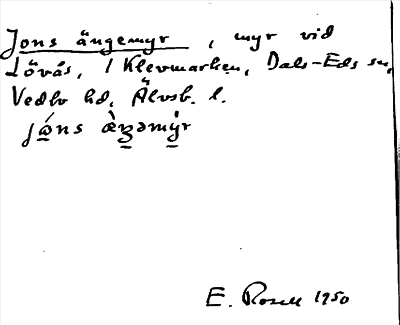 Jons ängemyr , myr vid
Lövås, / Klevmarken, Dals-Eds sn,
Vedbo hd, Älvsb. l.
E. Rosell 1950